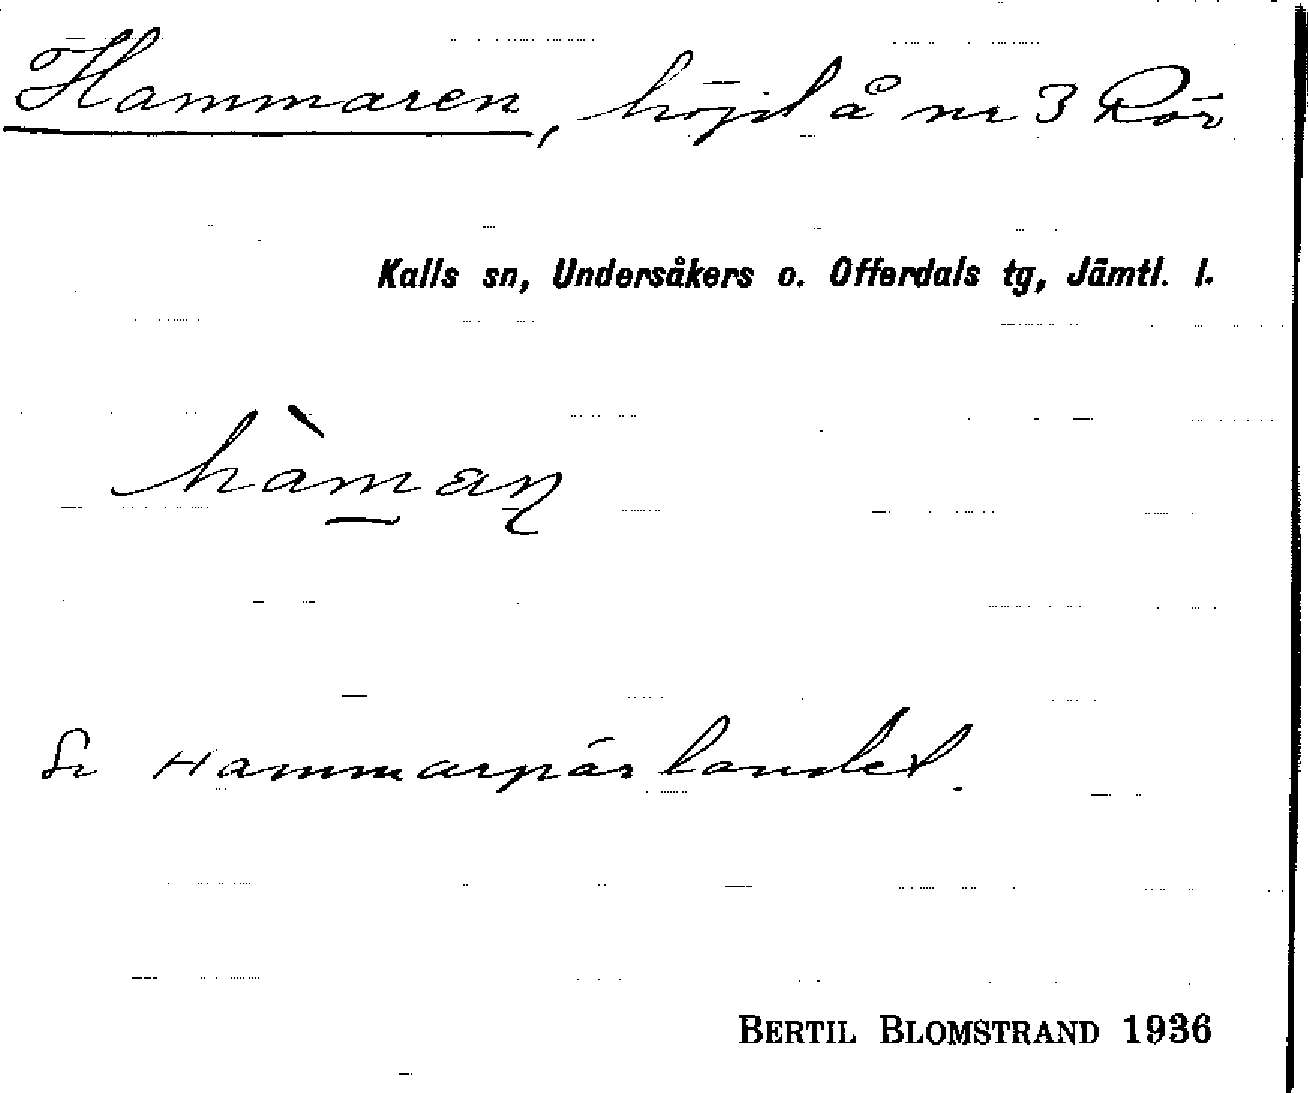 Hammaren, höjd å nr 3 Rör
Kalls sn, Undersåkers o. Offerdals tg, Jämtl. l.
hàmaɳ
Se Hammarpärlandet.
BERTIL BLOMSTRAND 1936